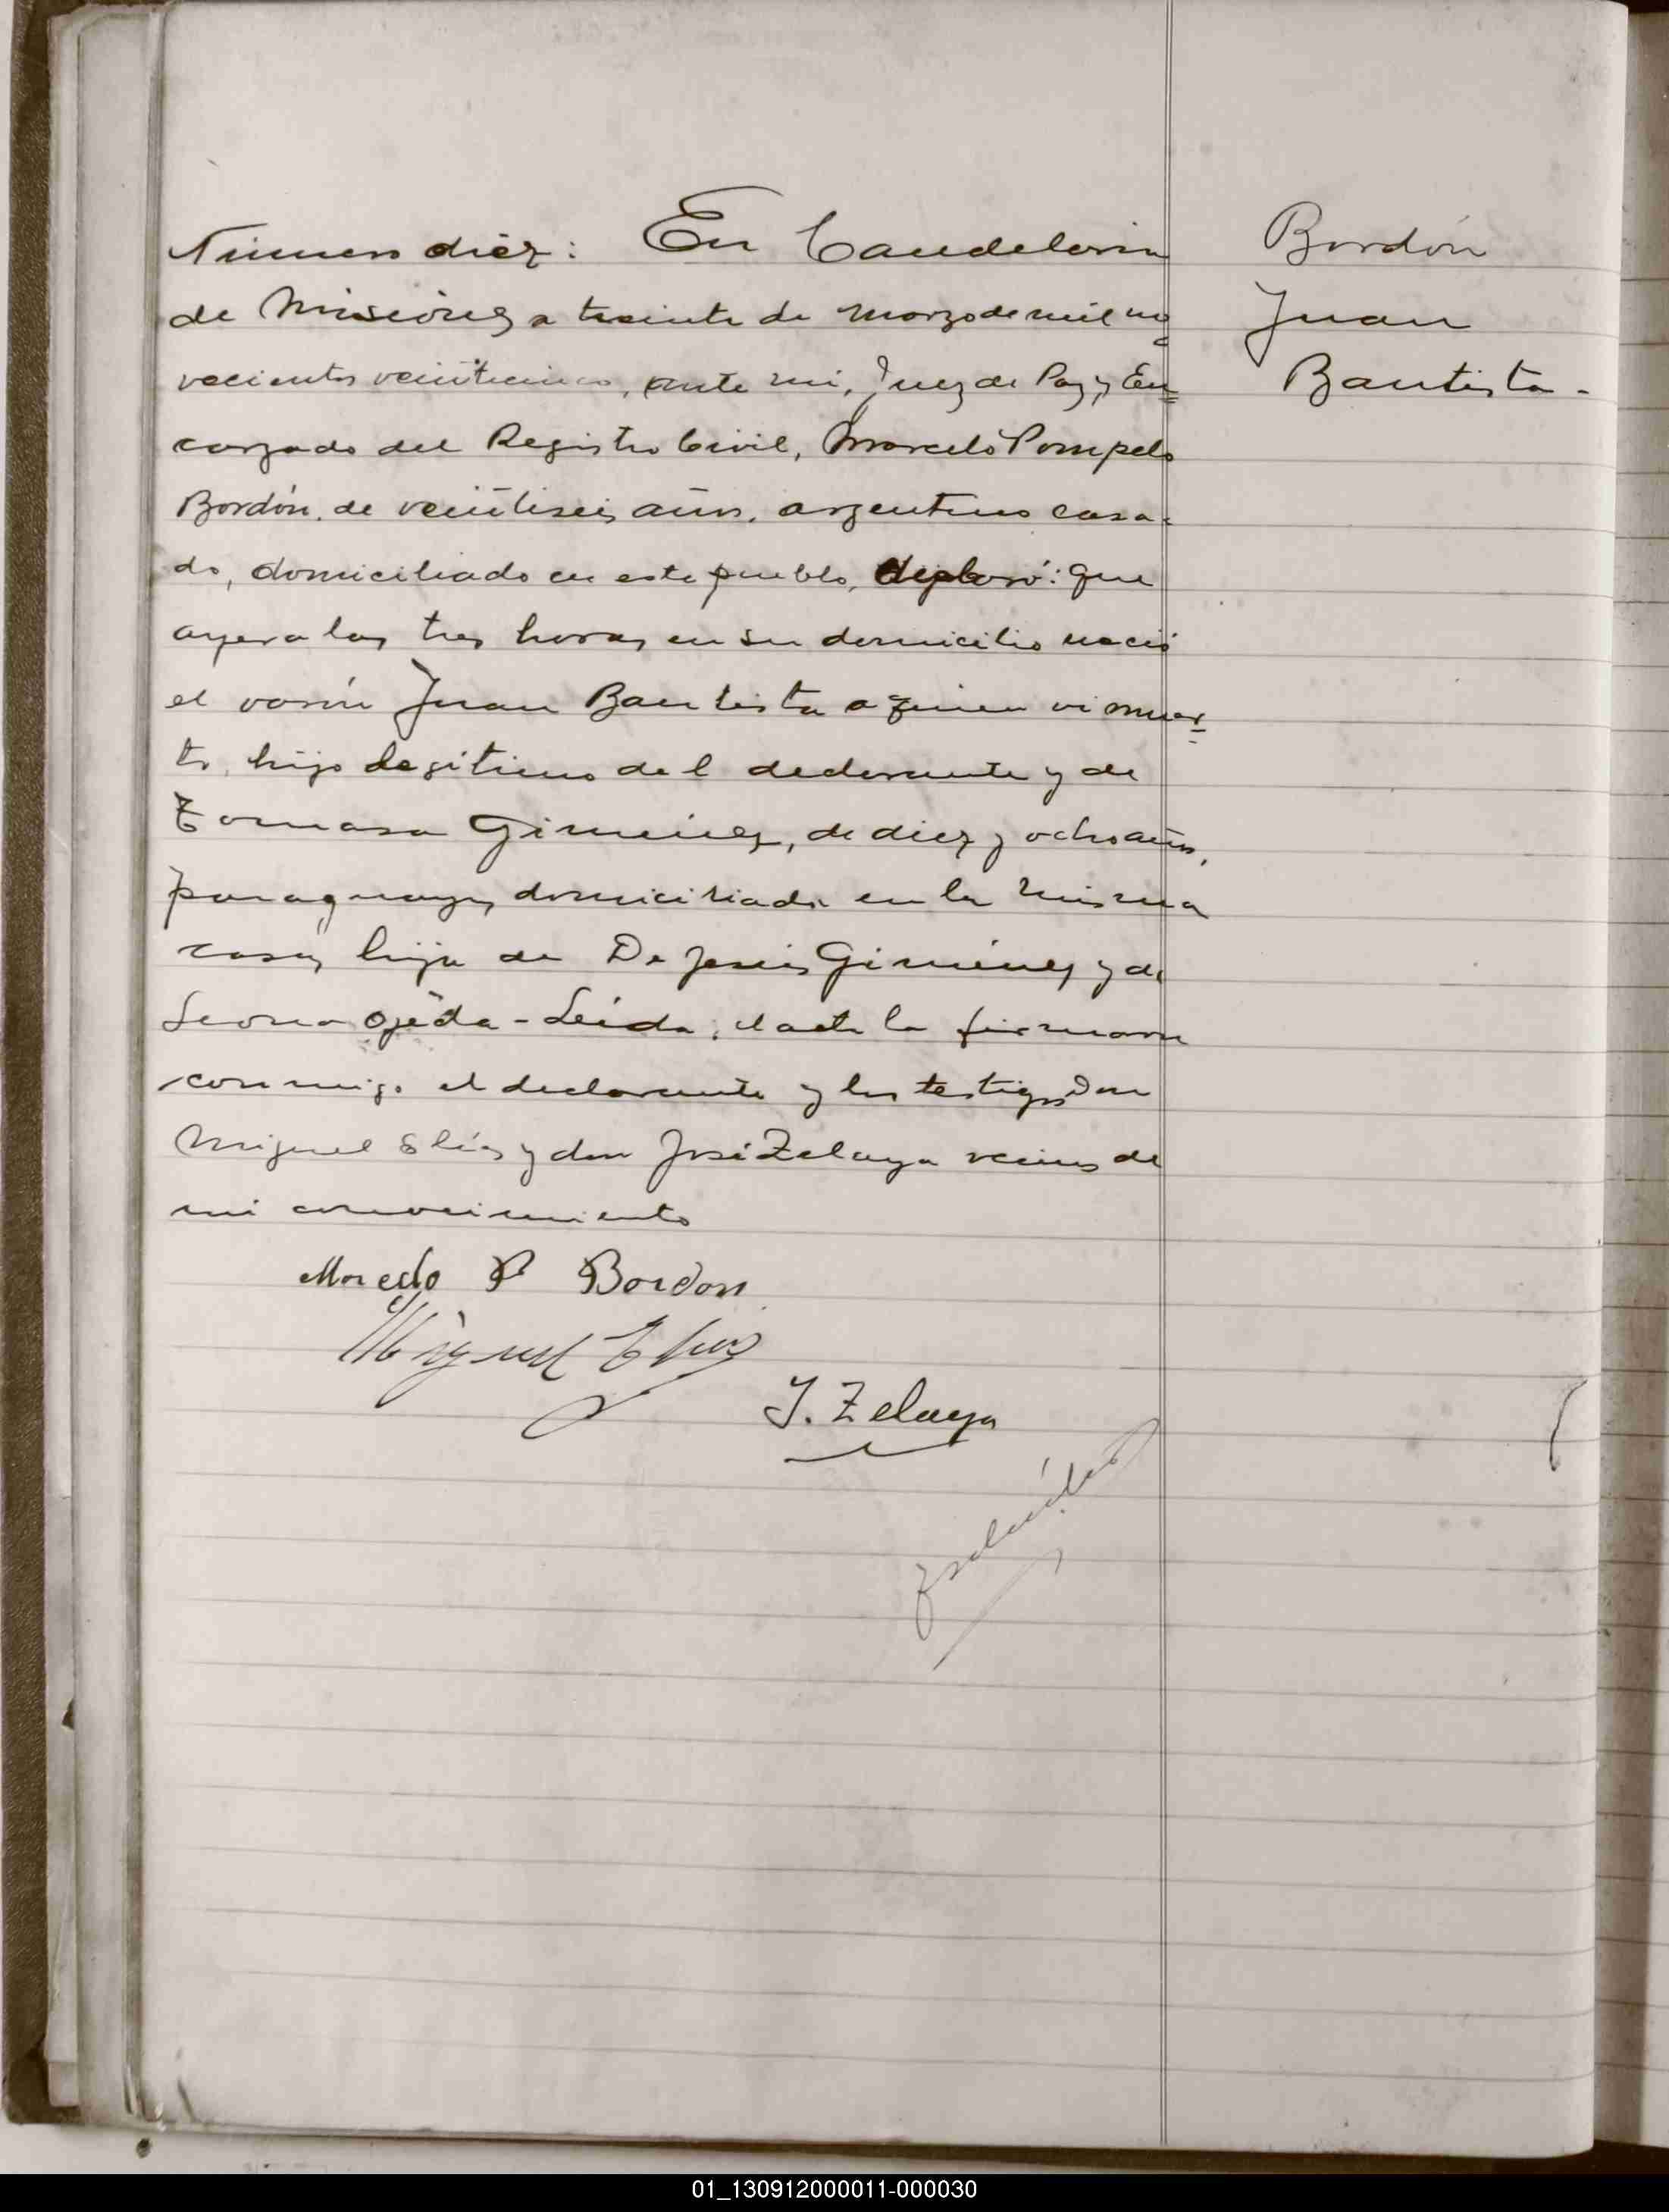 Número diez: En Candelaria
de Misiones a treinta de marzo de mil no
vecientos veinticinco, ante mi, Juez de Paz y En=
cargado del Registro Civil, Marcelo Pompelo
Bordón, de veintiseis años, argentino casa-
do, domiciliado en este pueblo, declaró: que
ayer a las tres horas en su domicilio nació
el varón Juan Bautista a quien vi muer=
to, hijo legitimo del declarante y de
Tomasa Giménez, de diez y ocho años,
paraguaya, domiciliada en la misma
casa, hija de De Jesús Giménez y de
Leona Ojéda - Leída el acta la firmaron
conmigo el declarante y los testigos Don
Miguel Elías y don José Zelaya vecinos de
mi conocimiento
Marcelo P Bordon
Miguel Elias
J. Zelaya
Bordón
Juan
Bautista -
01_130912000011-000030